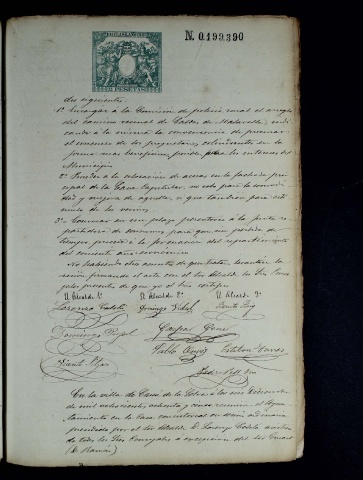 N. 0.199.390
PESETAS
dos siguientes.
1ª Encargar á la Comision de policia rural el arreglo
del camino vecinal de Caldas de Malavella, indi
cando á la misma la conveniencia de procurar
el concurso de los propietarios colindantes en la
forma mas beneficiosa posible para los intereses del
Municipio.
2ª Proceder á la colocacion de aceras en la fachada prin
cipal de la Casa Capitular, no solo para la comodi
dad y mejora de aquella, si que tambien para esti
mulo de los vecinos.
3ª Convocar en un plazo perentorio á la junta re
partidora de consumos para que, sin perdida de
tiempo, proceda á la formacion del repartimiento
del corriente año económico.
No habiendo otro asunto de que tratar, levantóse la
sesion firmando el acta con el Sor Alcalde los Sres Conce
jales presentes de que yo el Srio certifico.
El Alcalde 1º El Alcalde 2º El Alcalde 3º
Lorenzo Domingo Vidal Benito Puig
Domingo Gaspar
Vicente Pablo Esteban
En la villa de Cassá de la Selva á los
de mil ochocientos ochenta y reunido el Ayun
tamiento en la Casa consistorial en sesion ordinaria
presidida por el Sor Alcalde D. Lorenzo
de todos los Sres Concejales á excepcion del Sor
(D. Ramon)